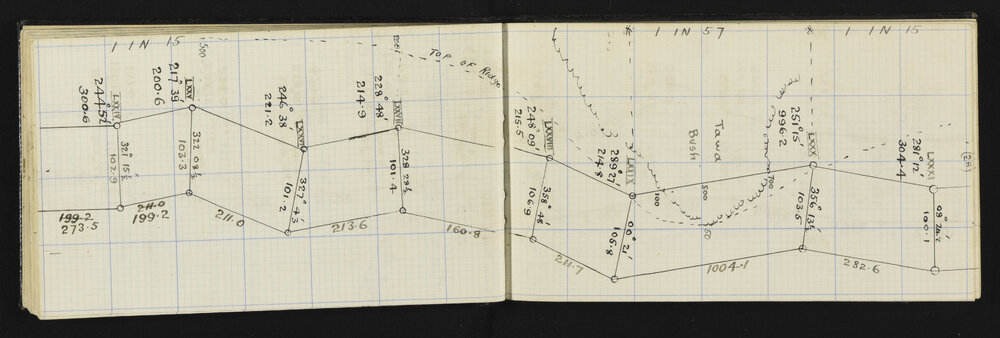 1 IN 15
500
TOP OF Ridge
LXXIV
244° 52'
300.6
LXXV
217° 39'
200.6
246° 38'
221.2
LXXVII
228° 48'
214.9
322 08½
103.3
102.9
327° 43'
101.2
328 28½
101.4
199.2
273.5
211.0
199.2
211.0
213.6
160.8
1 IN 57
1 IN 15
LXXVIII
248° 09'
215.5
LXXIX
289° 27'
214.8
Tawa
Bush
251° 15'
996.2
LXXX
LXXXI
281° 12'
304.4
100
500
700
50
358° 45'
106.9
00° 21'
105.8
356° 13½'
103.5
100.1
211.7
1004.1
282.6